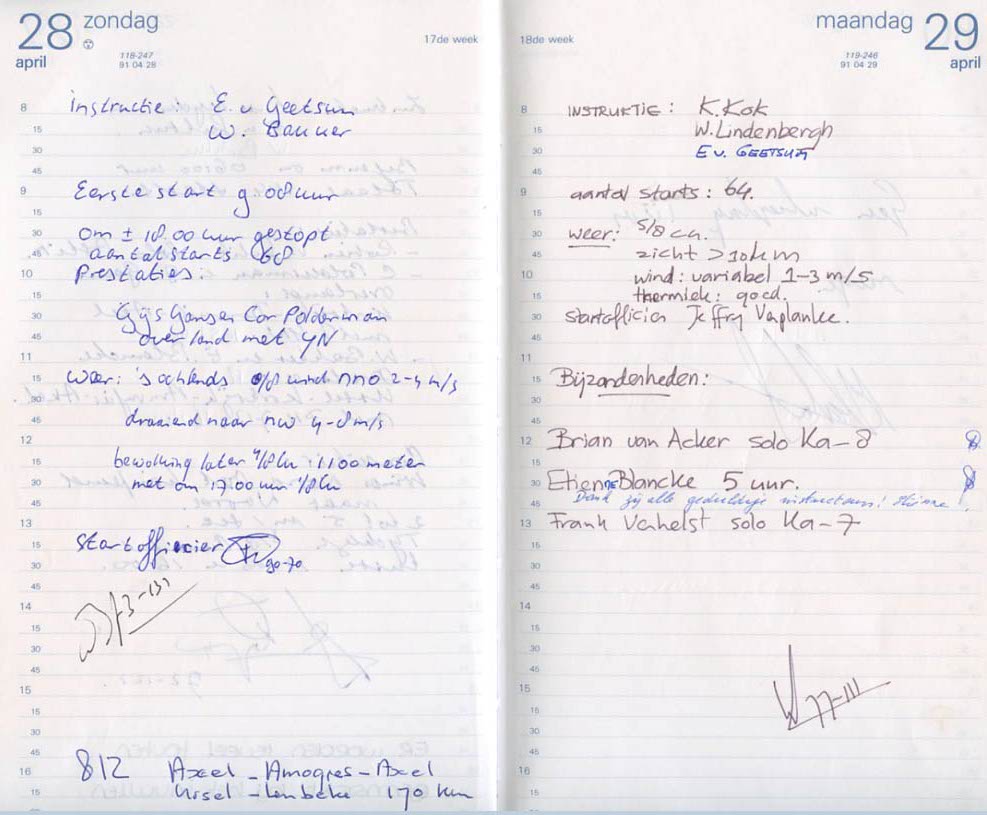 28 zondag
april
118-247
91 04 28
17de week
8 instructie: E. v Geetsum
15 W. Banner
30
9 Eerste start 9 08 uur
15
30 om ± 18.00 uur gestopt
45 aantal starts 68
10 Prestaties:
15
30 Gijs Gansen Cor Polderman
45 overland met YN
11
15 weer: 's ochtends 0/8 wind nno 2-4 m/s
30
45 draaiend naar nw 4-8 m/s
12
15 bewolking later 4/8 Cu 1100 meter
30 met om 17.00 uur 1/8 Cu
45
13
15 startofficier 90-70
30
45 73-133
14
15
30
45
15
15
30
45
16 812 Axel - Amogres - Axel
15 Ursel - Lembeke 170 km
maandag 29
april
119-246
91 04 29
18de week
8 INSTRUKTIE: K. Kok
15 W. Lindenbergh
30 E v. GEETSUM
9 aantal starts: 64.
15
30 weer: 5/8 cu.
45 zicht > 10 km
10 wind: variabel 1-3 m/s
15 thermiek: goed.
30 startofficier Jeffry Verplanke.
45
11
15 Bijzonderheden:
30
45
12 Brian van Acker solo Ka-8
15
30 Etienne Blancke 5 uur.
45 Dank zij alle geduldige instructeurs!
13 Frank Verhelst solo Ka-7
15
30
45
14
15
30
45
15 77-111
15
30
45
16
15